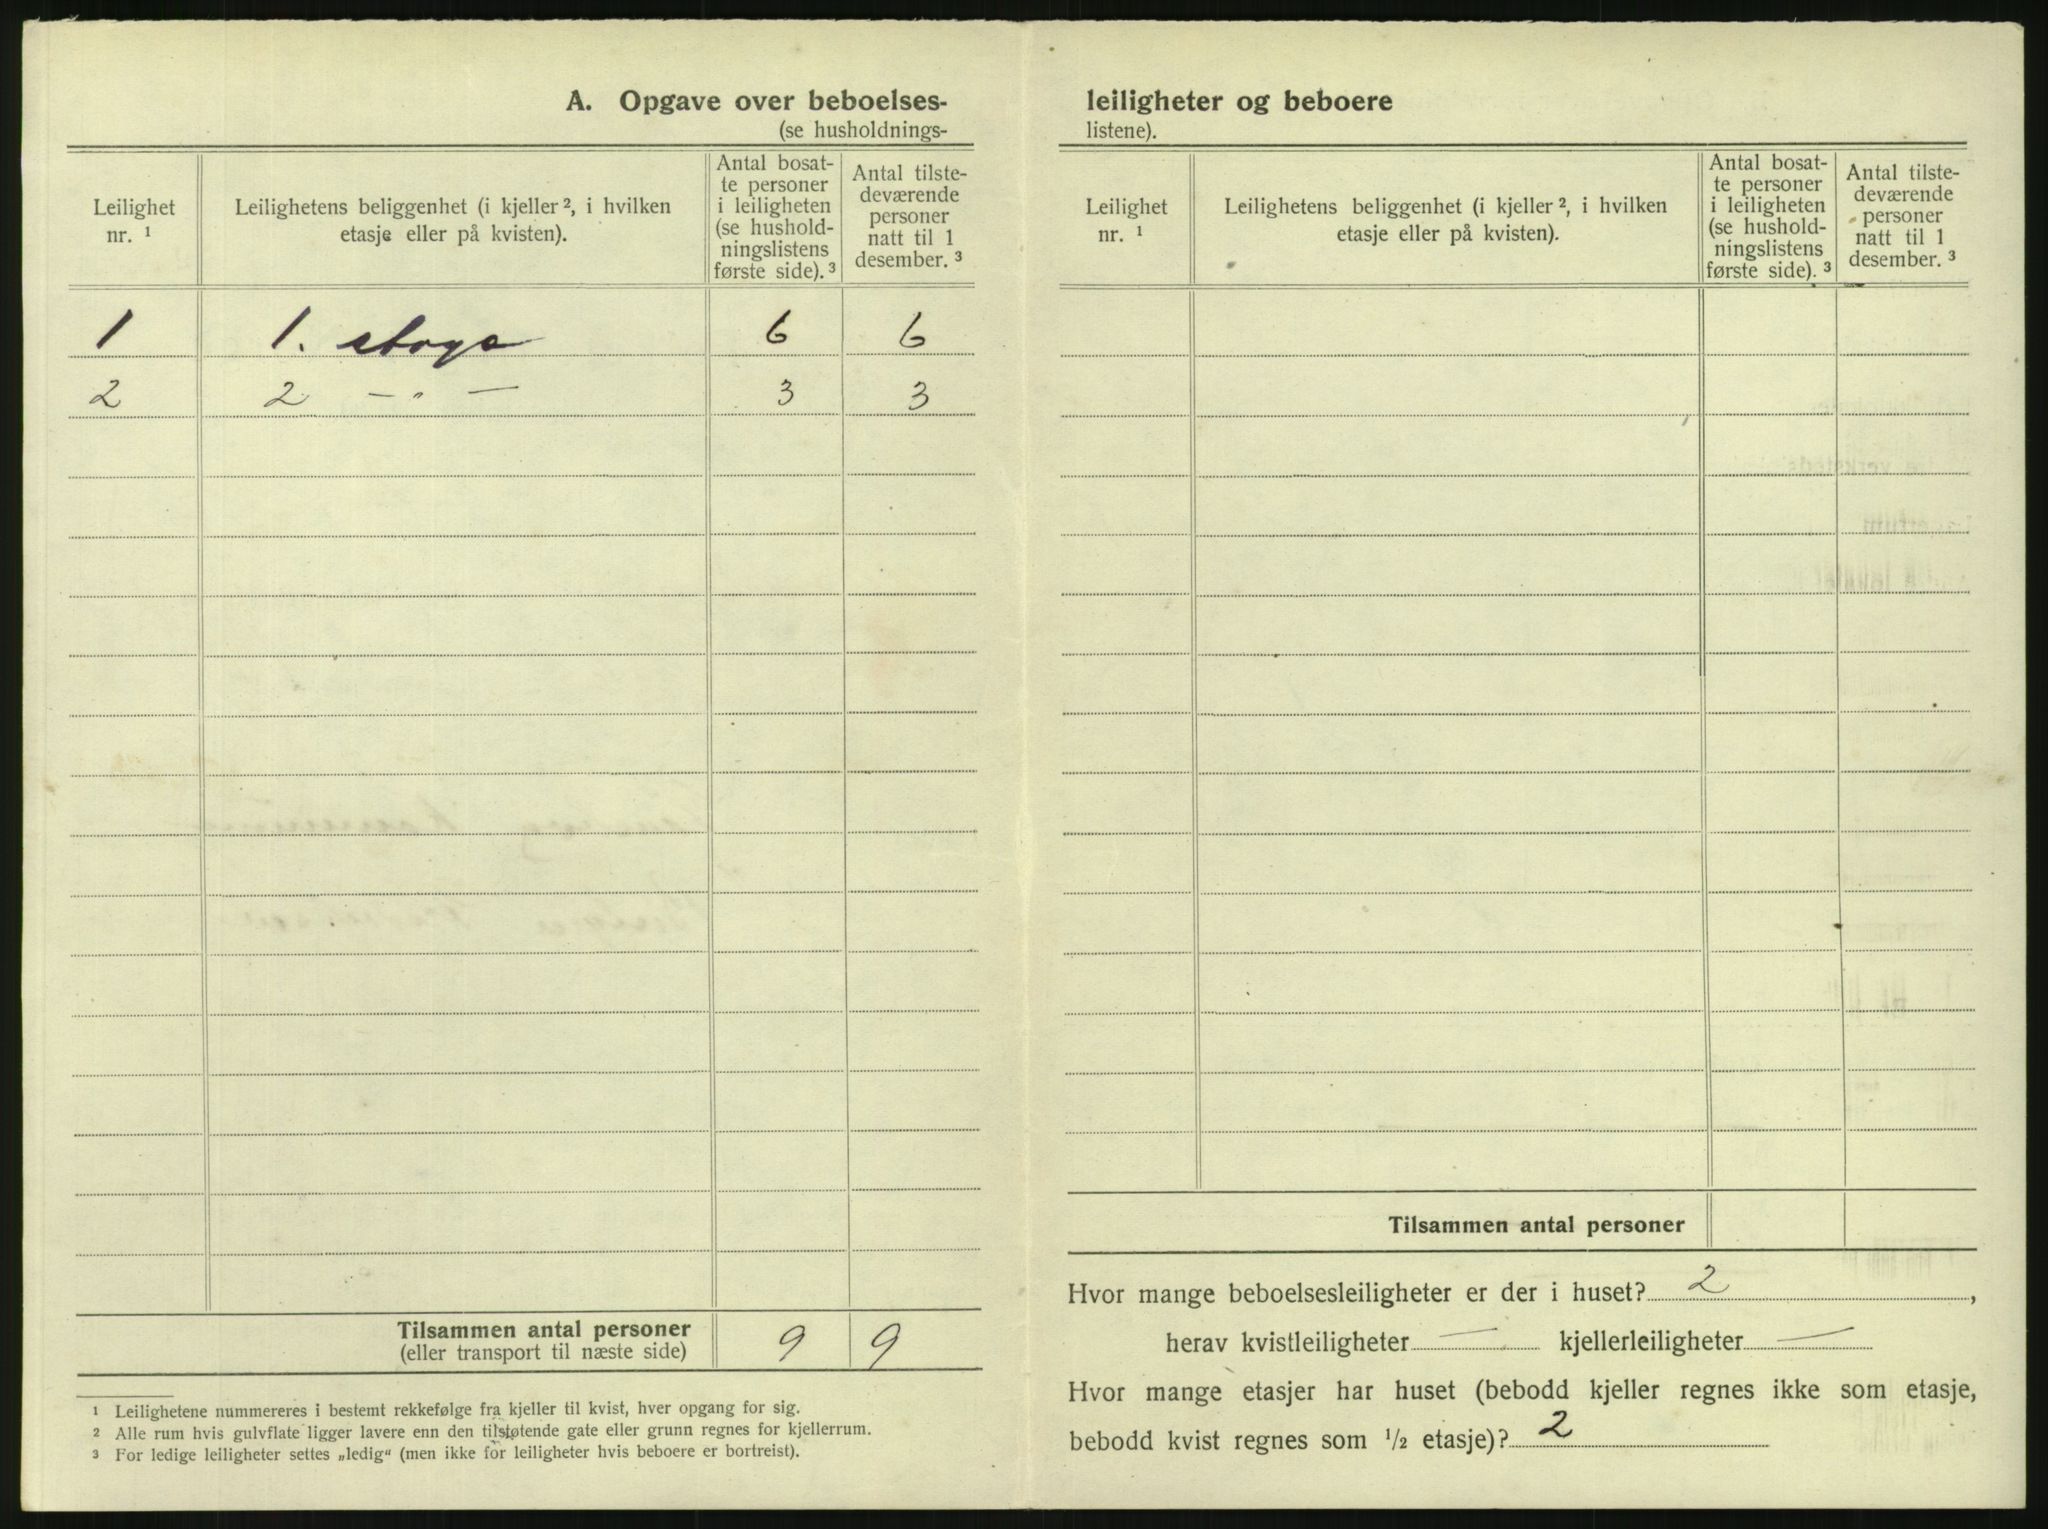 A. Opgave over beboelses-
(se husholdnings-
Leilighet
nr. ¹
Leilighetens beliggenhet (i kjeller ², i hvilken
etasje eller på kvisten).
Antal bosat-
te personer
i leiligheten
(se hushold-
ningslistens
første side). ³
Antal tilste-
deværende
personer
natt til 1
desember. ³
1 1. etage 6 6
2 2 — " — 3 3
Tilsammen antal personer 9 9
(eller transport til næste side)
¹ Leilighetene nummereres i bestemt rekkefølge fra kjeller til kvist, hver opgang for sig.
² Alle rum hvis gulvflate ligger lavere enn den tilstøtende gate eller grunn regnes for kjellerrum.
³ For ledige leiligheter settes „ledig“ (men ikke for leiligheter hvis beboere er bortreist).
leiligheter og beboere
listene).
Leilighet
nr. ¹
Leilighetens beliggenhet (i kjeller ², i hvilken
etasje eller på kvisten).
Antal bosat-
te personer
i leiligheten
(se hushold-
ningslistens
første side). ³
Antal tilste-
deværende
personer
natt til 1
desember. ³
Tilsammen antal personer
Hvor mange beboelsesleiligheter er der i huset? 2,
herav kvistleiligheter — kjellerleiligheter —
Hvor mange etasjer har huset (bebodd kjeller regnes ikke som etasje,
bebodd kvist regnes som ½ etasje)? 2